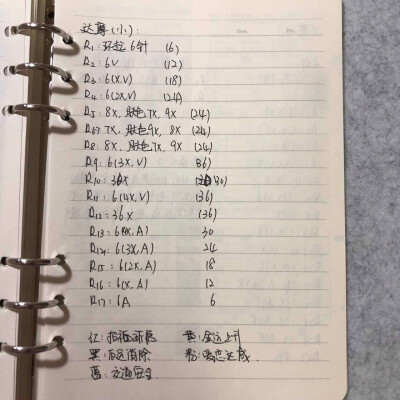 达摩(小):
R1: 环起 6针 (6)
R2: 6V (12)
R3: 6(X,V) (18)
R4: 6(2X,V) (24)
R5: 8X, 肤色7X, 9X (24)
R67: 7X, 肤色9X, 8X (24)
R8: 8X, 肤色7X, 9X (24)
R9: 6(3X,V) 36)
R10: 30X 30)
R11: 6(4X,V) (36)
R12: 36X (36)
R13: 6(4X,A) 30
R14: 6(3X,A) 24
R15: 6(2X,A) 18
R16: 6(X,A) 12
R17: 6A 6
红: 招福 黄: 金运上升
黑: 灾厄消除 粉: 恋愛达成
蓝: 交通安全